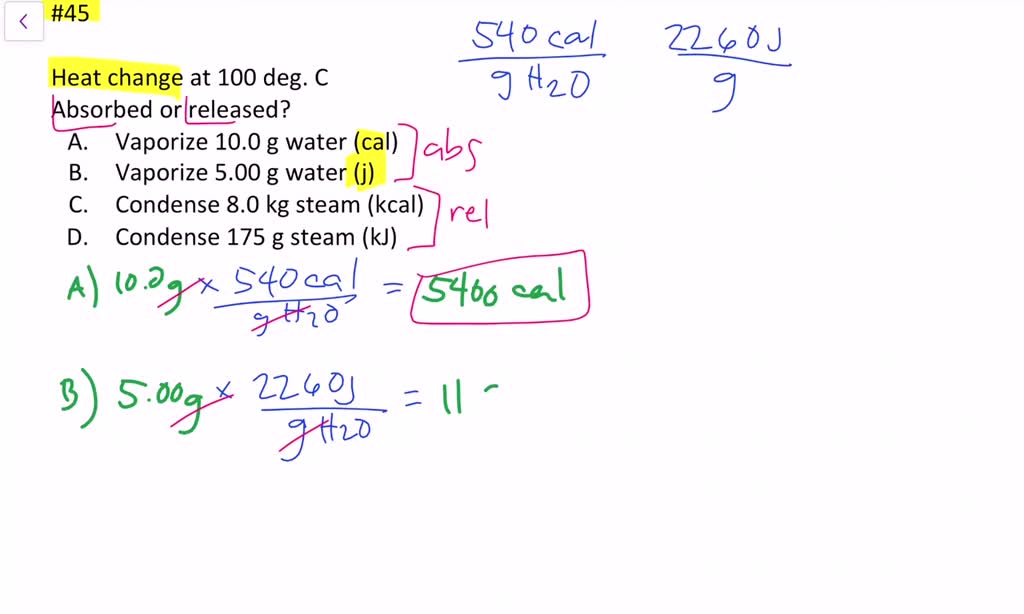 #45
540 cal / g H2O    2260J / g
Heat change at 100 deg. C
Absorbed or released?
A. Vaporize 10.0 g water (cal)
B. Vaporize 5.00 g water (j)
abs
C. Condense 8.0 kg steam (kcal)
D. Condense 175 g steam (kJ)
rel
A) 10.0g x 540 cal / g H2O = 5400 cal
B) 5.00g x 2260J / g H2O = 11